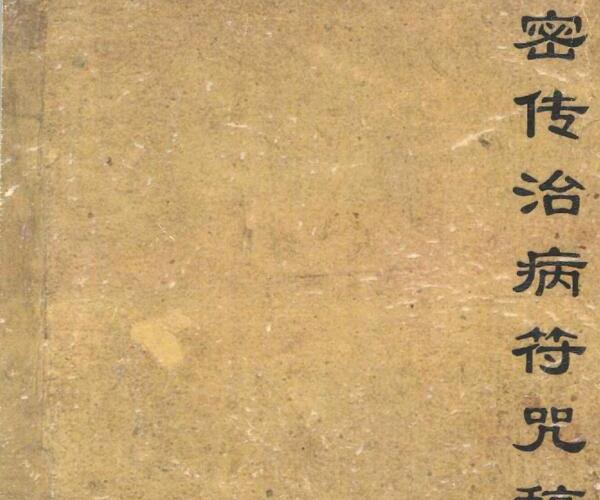 密传治病符咒